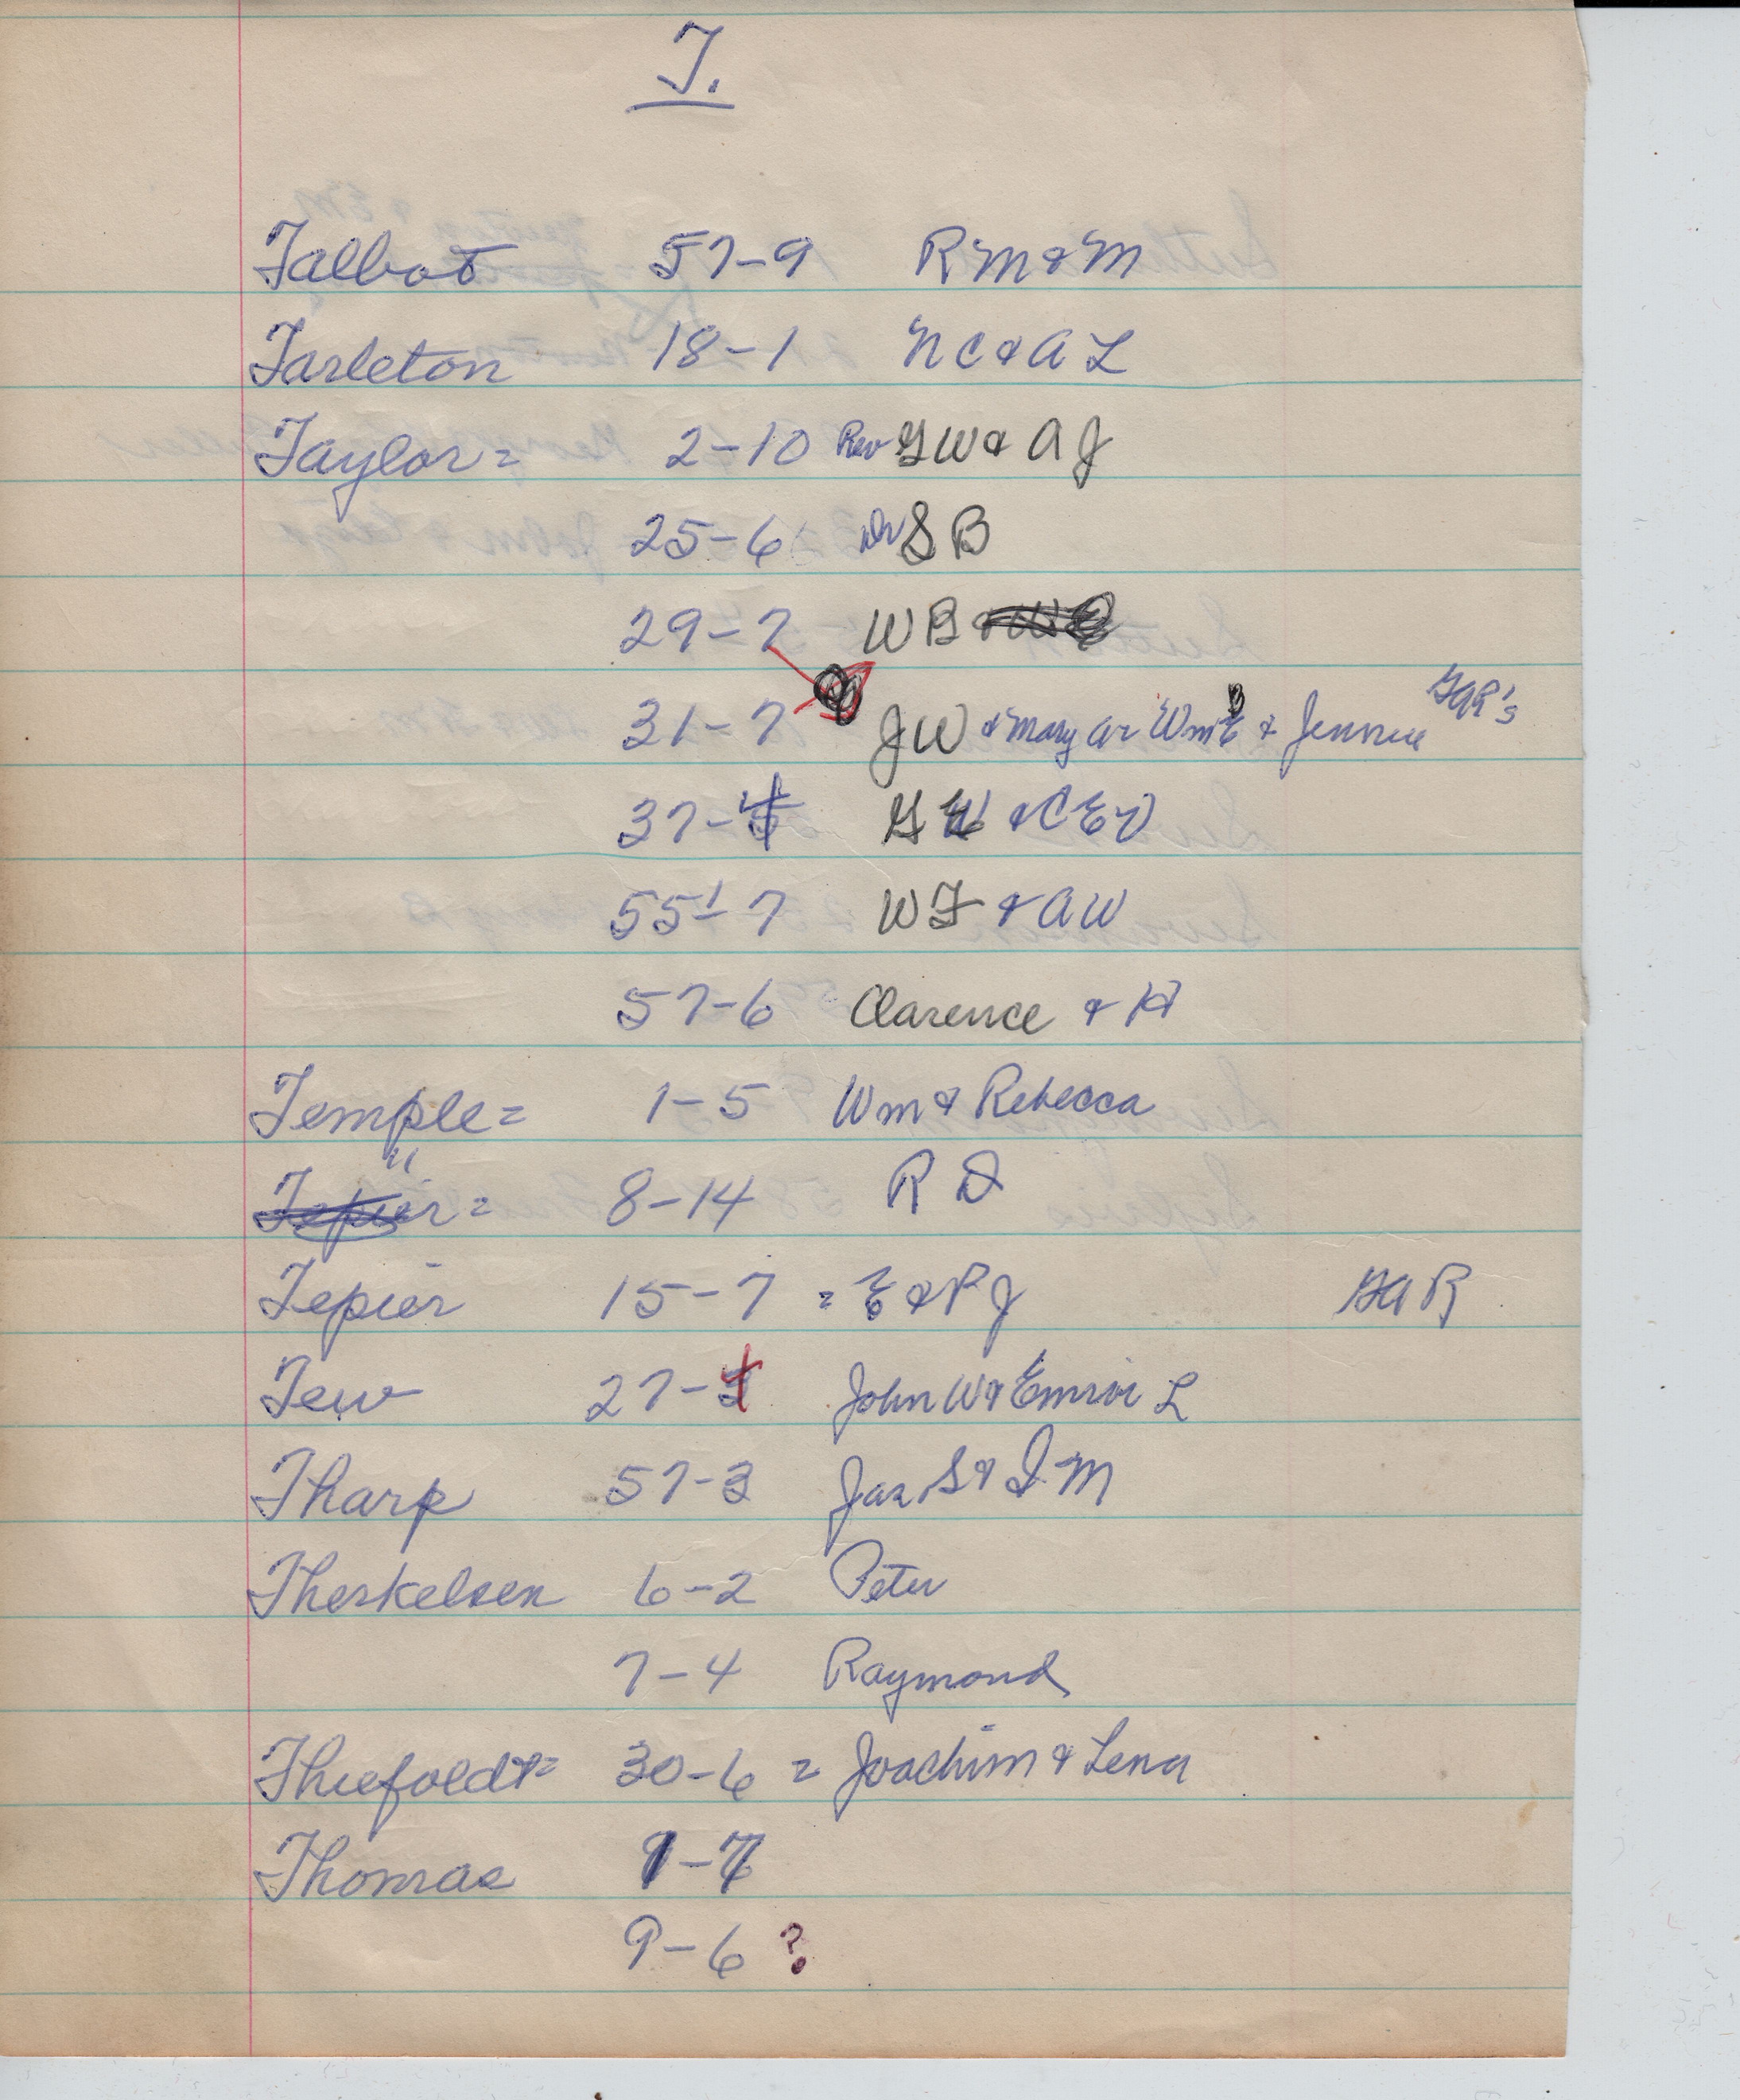 T.
Talbot 57-9 RM & M
Tarleton 18-1 NC & A L
Taylor = 2-10 Rev GW & A J
25-6 Dr S B
29-7 WB
31-7 JW & Mary ar Wm B & Jennie GAR's
37-4 G W & C E V
55-7 W F & A W
57-6 Clarence & H
Temple = 1-5 Wm & Rebecca
" = 8-14 R D
Tepier 15-7 = E & P J GAR
Tew 27-4 John W & Emir L
Tharp 57-3 Jas S & I M
Therkelsen 6-2 Peter
7-4 Raymond
Thiefoldt = 30-6 = Joachim & Lena
Thomas 1-7
9-6 ?